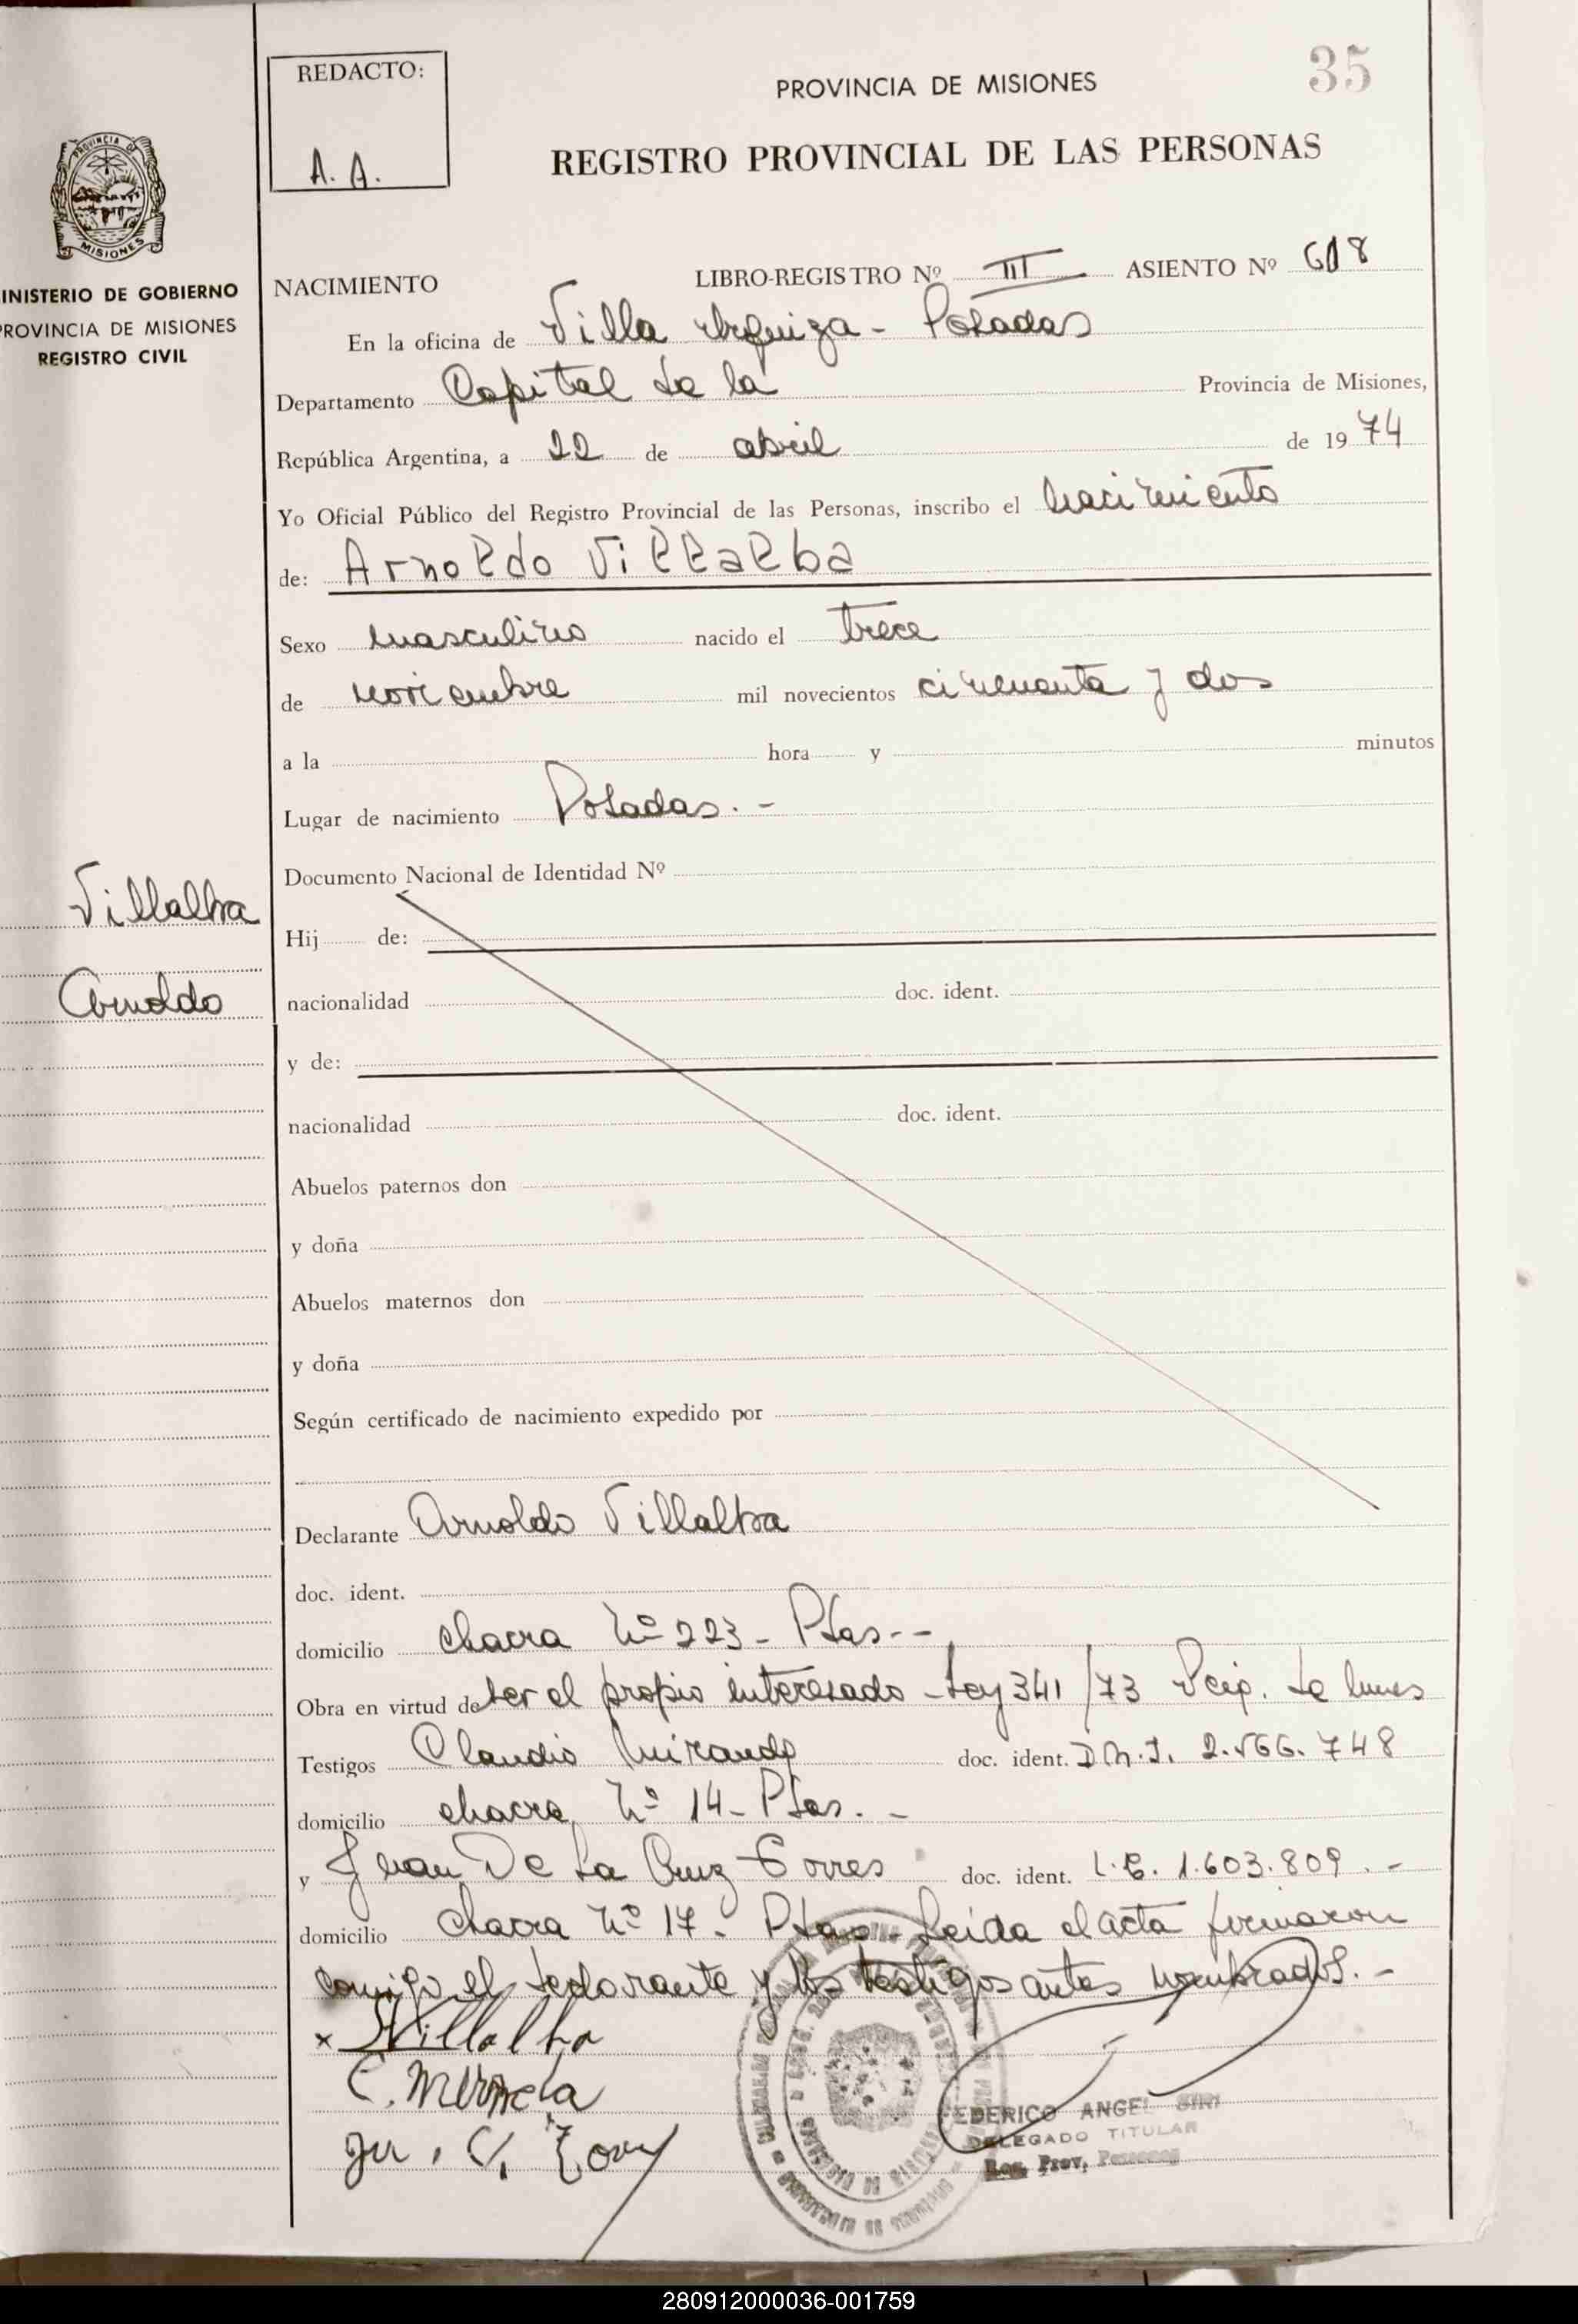 REDACTO:
A. A.
PROVINCIA DE MISIONES
35
REGISTRO PROVINCIAL DE LAS PERSONAS
PROVINCIA DE
MISIONES
INISTERIO DE GOBIERNO
PROVINCIA DE MISIONES
REGISTRO CIVIL
NACIMIENTO LIBRO-REGISTRO Nº III ASIENTO Nº 618
En la oficina de Villa Urquiza - Posadas
Departamento Capital de la Provincia de Misiones,
República Argentina, a 22 de abril de 1974
Yo Oficial Público del Registro Provincial de las Personas, inscribo el nacimiento
de: Arnoldo Villalba
Sexo masculino nacido el trece
de noviembre mil novecientos cincuenta y dos
a la hora y minutos
Lugar de nacimiento Posadas. -
Documento Nacional de Identidad Nº
Villalba
Hij de:
Arnoldo
nacionalidad doc. ident.
y de:
nacionalidad doc. ident.
Abuelos paternos don
y doña
Abuelos maternos don
y doña
Según certificado de nacimiento expedido por
Declarante Arnoldo Villalba
doc. ident.
domicilio chacra Nº 223 - Pdas. - -
Obra en virtud de ser el propio interesado - Ley 341/73
Testigos Claudio Miranda doc. ident. D.N.I. 2.566.748
domicilio chacra Nº 14 - Pdas. -
y Juan De La Cruz Torres doc. ident. L.E. 1.603.809. -
domicilio chacra Nº 17 - Pdas - Leída el acta firmaron
conmigo el declarante y los testigos antes nombrados. -
x Villalba
FEDERICO ANGEL SIRI
DELEGADO TITULAR
Reg. Prov. Personas
280912000036-001759